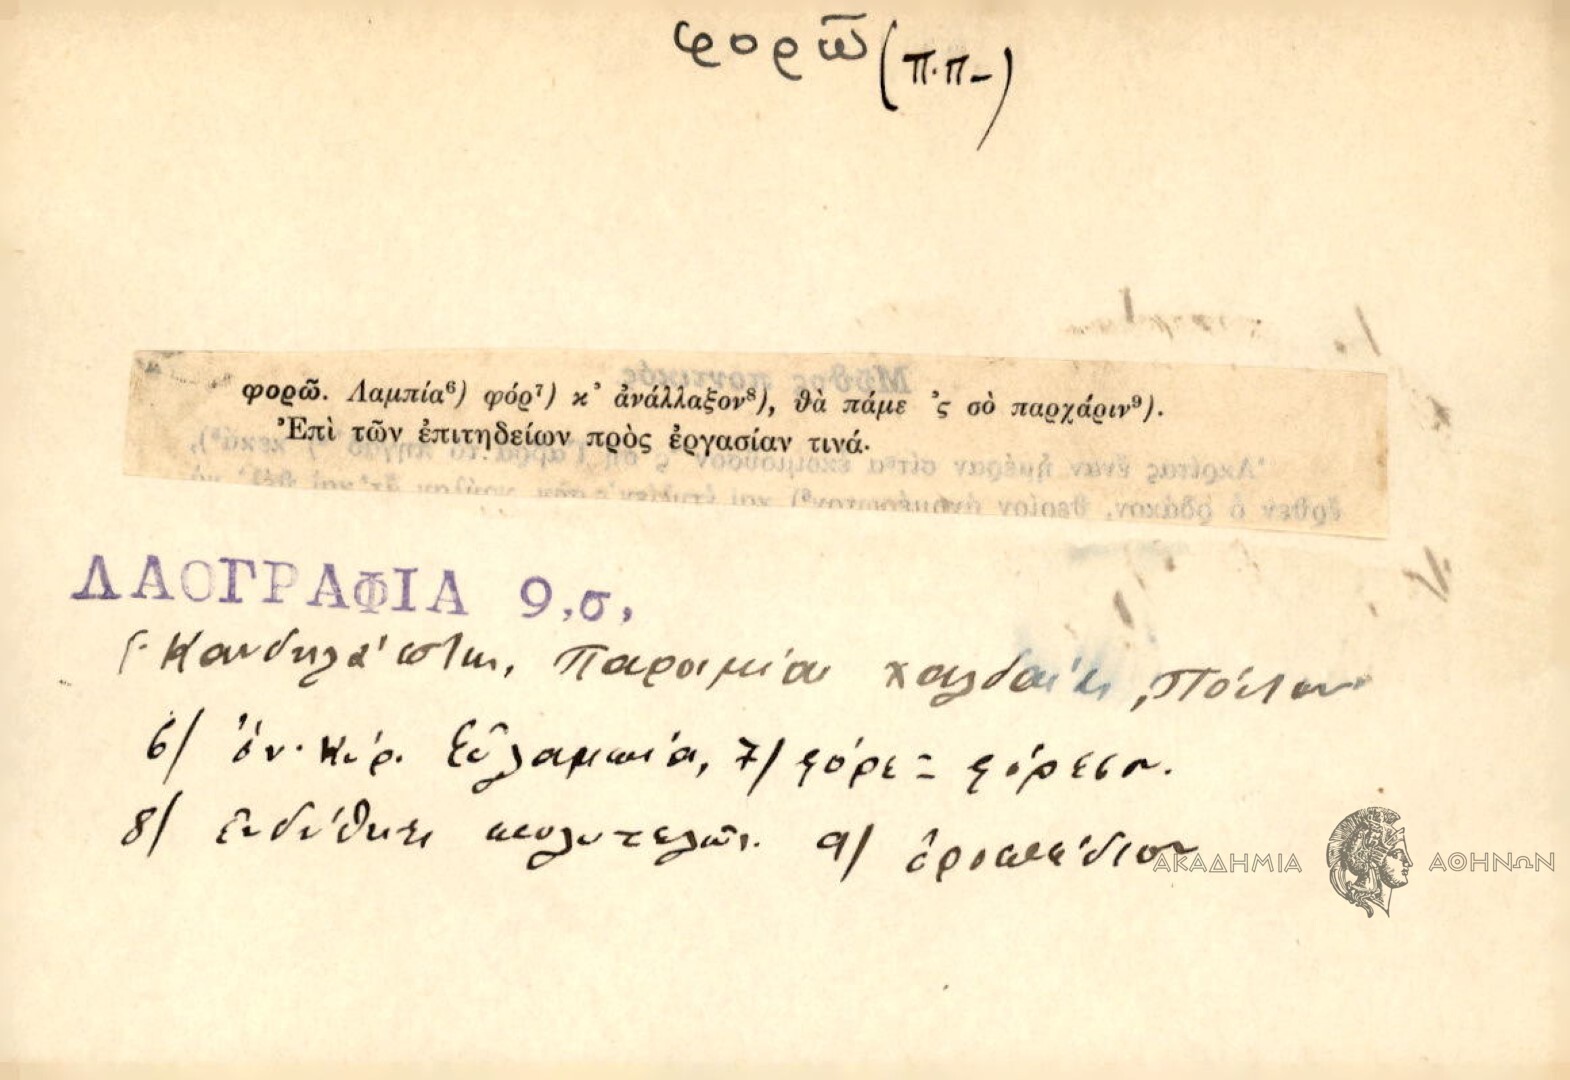 φορῶ (π.π-)
φορῶ. Λαμπία⁶) φόρ⁷) κ’ ἀνάλλαξον⁸), θὰ πάμε ’ς σὸ παρχάριν⁹).
Ἐπὶ τῶν ἐπιτηδείων πρὸς ἐργασίαν τινά.
ΛΑΟΓΡΑΦΙΑ 9,σ,
Γ. Κανδηλάπτη, Παροιμίαι χαλδαίας, Πόντου
6/ ὄν. κύρ. Εὐλαμπία, 7/ φόρε = φόρεσον.
8/ ἐνδύθητι πολυτελῶς. 9/ ὀροπέδιον
ΑΚΑΔΗΜΙΑ ΑΘΗΝΩΝ